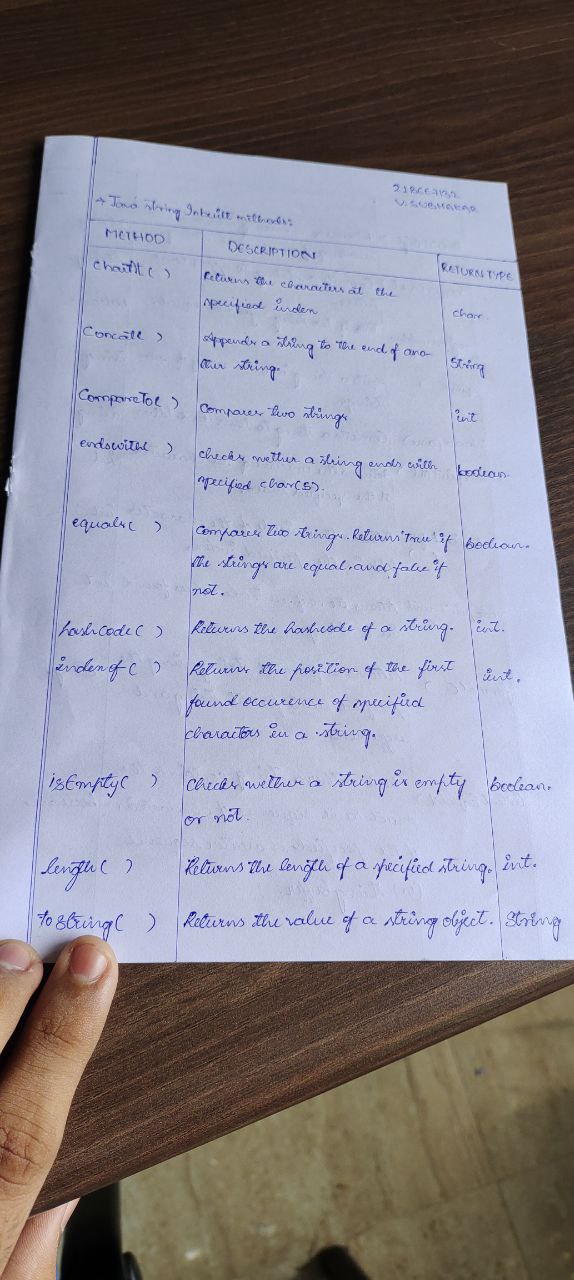 21BCE7132
V. SUBHAKAR
→ Java string Inbuilt methods:
METHOD DESCRIPTION RETURN TYPE
charAt( ) Returns the characters at the
specified inden char
Concat( ) Appends a string to the end of ano-
ther string. String
CompareTo( ) Compares two strings int
endswith( ) checks wether a string ends with boolean.
specified char(s).
equals( ) Compares two strings. Returns 'True' if boolean.
the strings are equal, and false if
not.
hashCode( ) Returns the hashcode of a string. int.
indenof( ) Returns the position of the first int.
found occurence of specified
characters in a string.
isEmpty( ) Checks wether a string is empty boolean.
or not.
length( ) Returns the length of a specified string. int.
toString( ) Returns the value of a string object. String